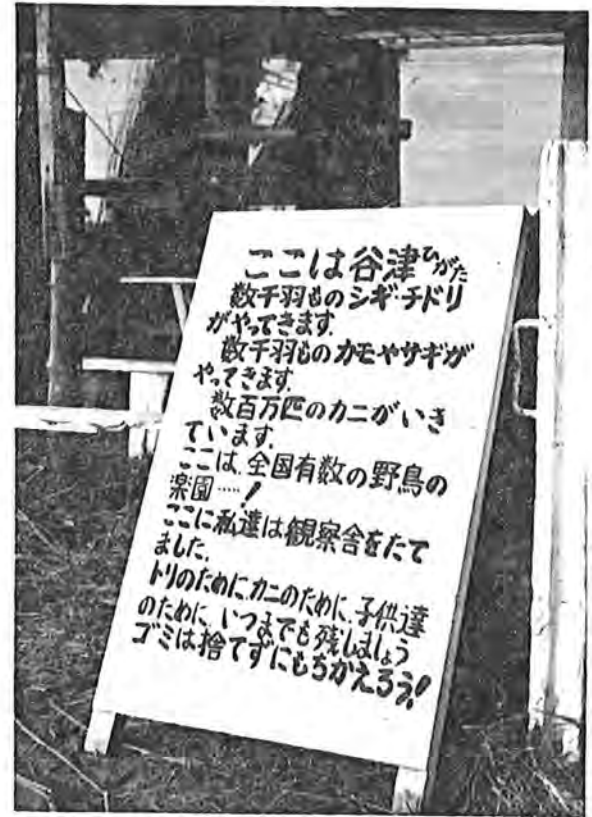 ここは谷津ひがた
数千羽ものシギ・チドリ
がやってきます.
数千羽ものカモやサギが
やってきます.
数百万匹のカニがいき
ています.
ここは、全国有数の野鳥の
楽園……!
ここに私達は観察舎をたて
ました.
トリのために、カニのために、子供達
のために、いつまでも残しましょう
ゴミは捨てずにもちかえろう!